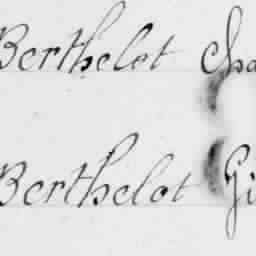 Berthelet Cha
Berthelot Gi